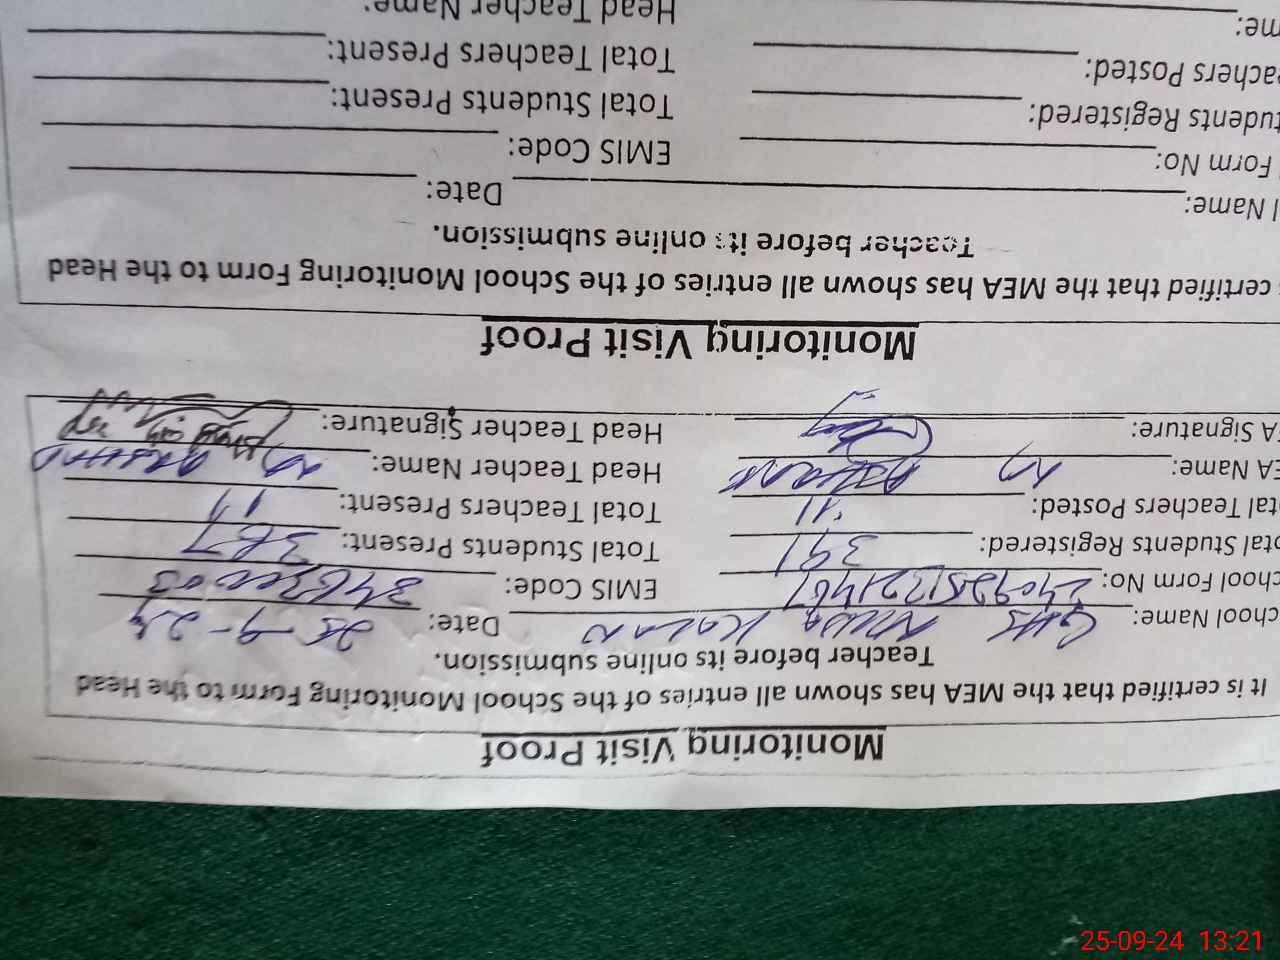 Monitoring Visit Proof
It is certified that the MEA has shown all entries of the School Monitoring Form to the Head
Teacher before its online submission.
chool Name: GHS Kalan Date: 25-9-24
chool Form No: EMIS Code:
otal Students Registered: 391 Total Students Present: 367
otal Teachers Posted: 11 Total Teachers Present: 11
EA Name: M Head Teacher Name: M ARSHAD
EA Signature: Head Teacher Signature:
Monitoring Visit Proof
s certified that the MEA has shown all entries of the School Monitoring Form to the Head
Teacher before its online submission.
l Name: Date:
Form No: EMIS Code:
tudents Registered: Total Students Present:
eachers Posted: Total Teachers Present:
me: Head Teacher Name:
25-09-24 13:21